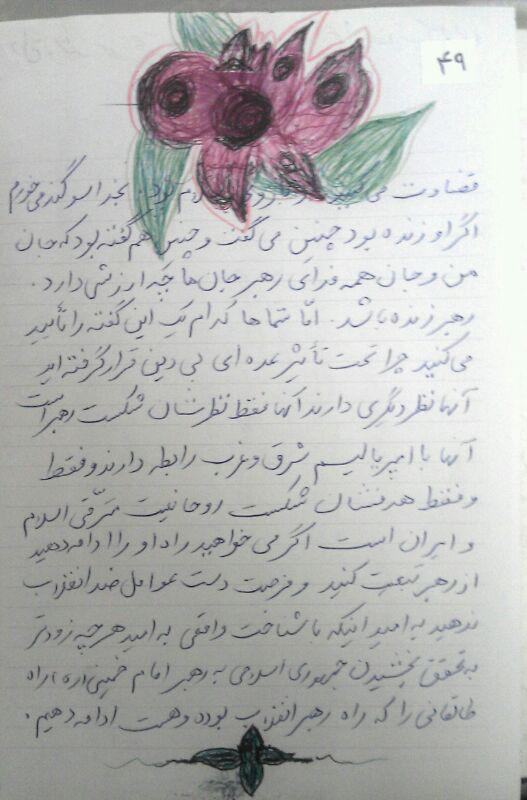 ۴۹
قضاوت می بخدا سوگند می خورم
اگر او زنده بود چنین می گفت و چنین هم گفته بود که جان
من و جان همه فدای رهبر جان ما چه ارزشی دارد.
رهبر زنده باشد. امّا شماها کدام یک این گفته را تأیید
می کنید چرا تحت تأثیر عده ای بی دین قرار گرفته اید
آنها نظر دیگری دارند آنها فقط نظرشان شکست رهبر است
آنها با امپریالیسم شرق و غرب رابطه دارند و فقط
و فقط هدفشان شکست روحانیت مترقّی اسلام
و ایران است اگر می خواهید راه او را ادامه دهید
از رهبر تبعیت کنید و فرصت دست عوامل ضد انقلاب
ندهید به امید اینکه با شناخت واقعی به امید هر چه زودتر
به تحقق بخشیدن جمهوری اسلامی به رهبر امام خمینی راه
طالقانی را که راه رهبر انقلاب بوده و هست ادامه دهیم.